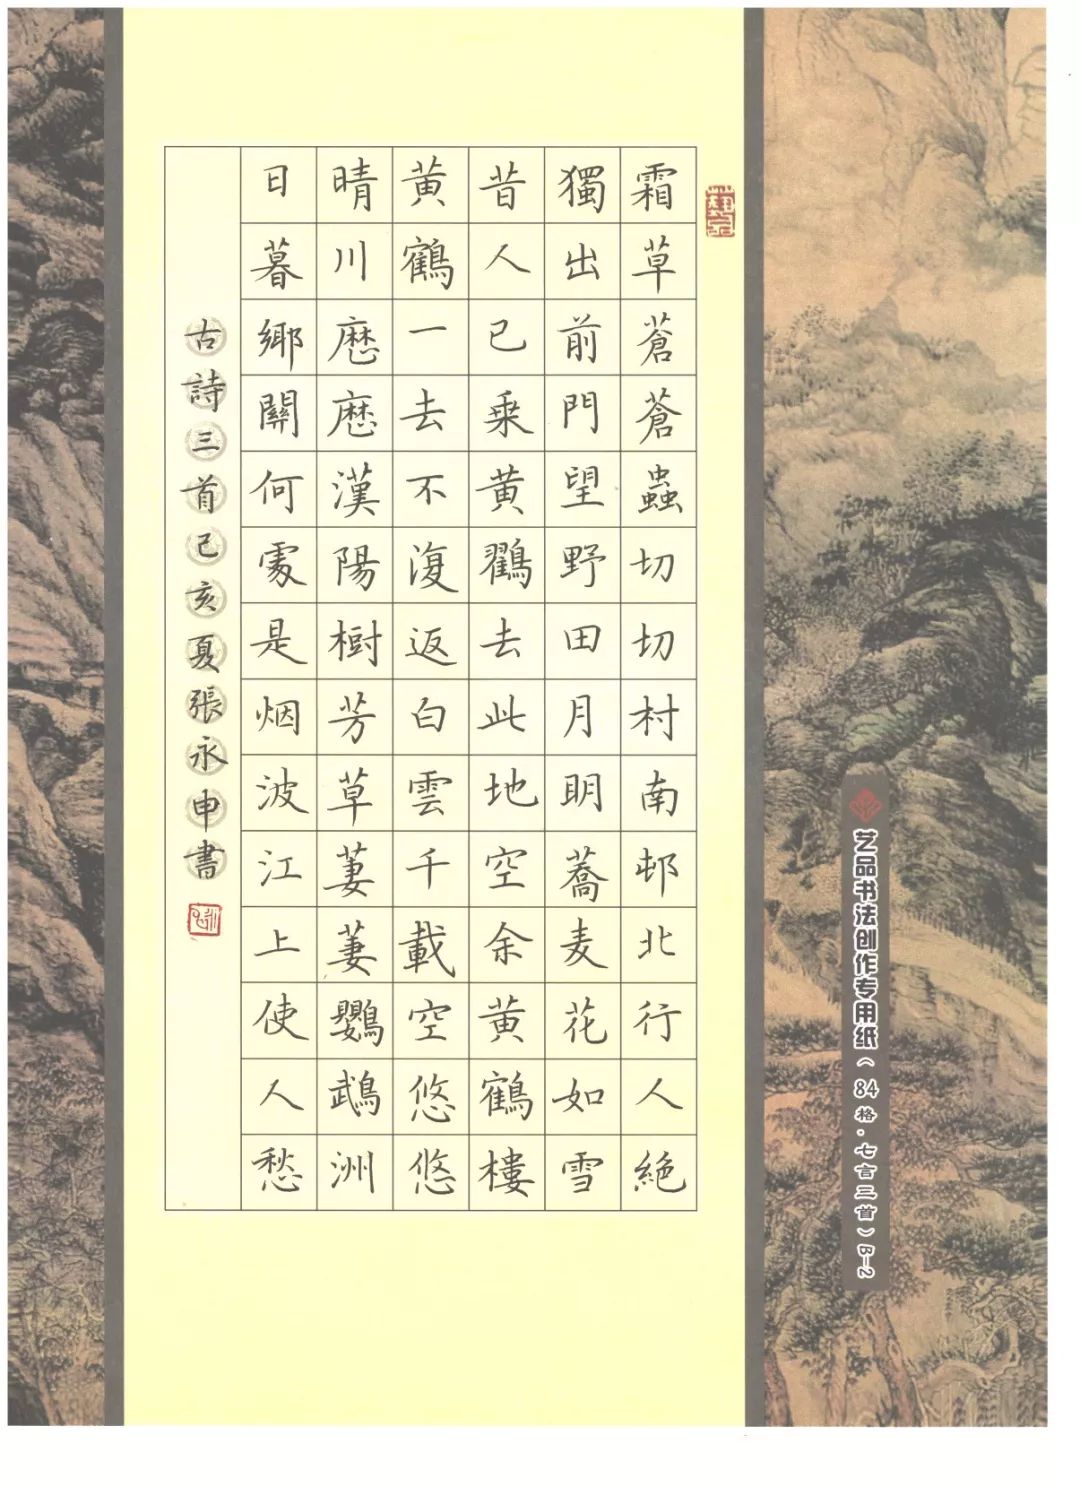 霜草蒼蒼蟲切切村南邨北行人絶
獨出前門望野田月明蕎麦花如雪
昔人已乗黄鶴去此地空余黄鶴樓
黄鶴一去不復返白雲千載空悠悠
晴川歴歴漢陽樹芳草萋萋鸚鵡洲
日暮鄉關何處是烟波江上使人愁
古詩三首己亥夏張永申書
艺品书法创作专用纸（84格·七言三首）B-2